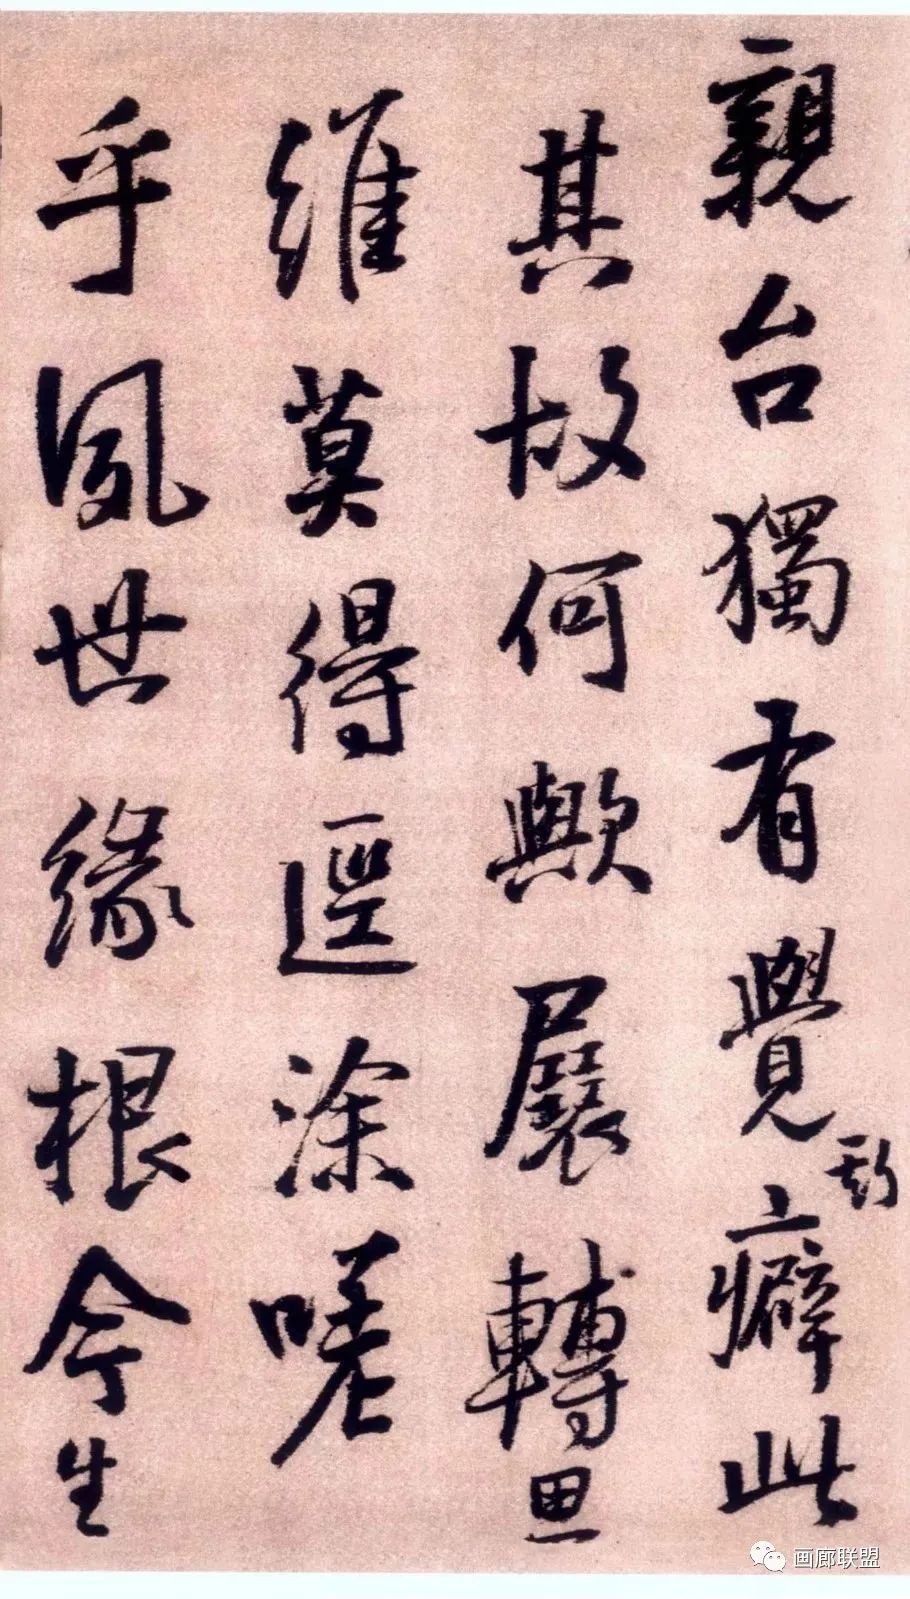 親台獨有覺斯癖此
其故何歟展轉思
維莫得逕涂嗟
乎夙世緣根今生
画廊联盟